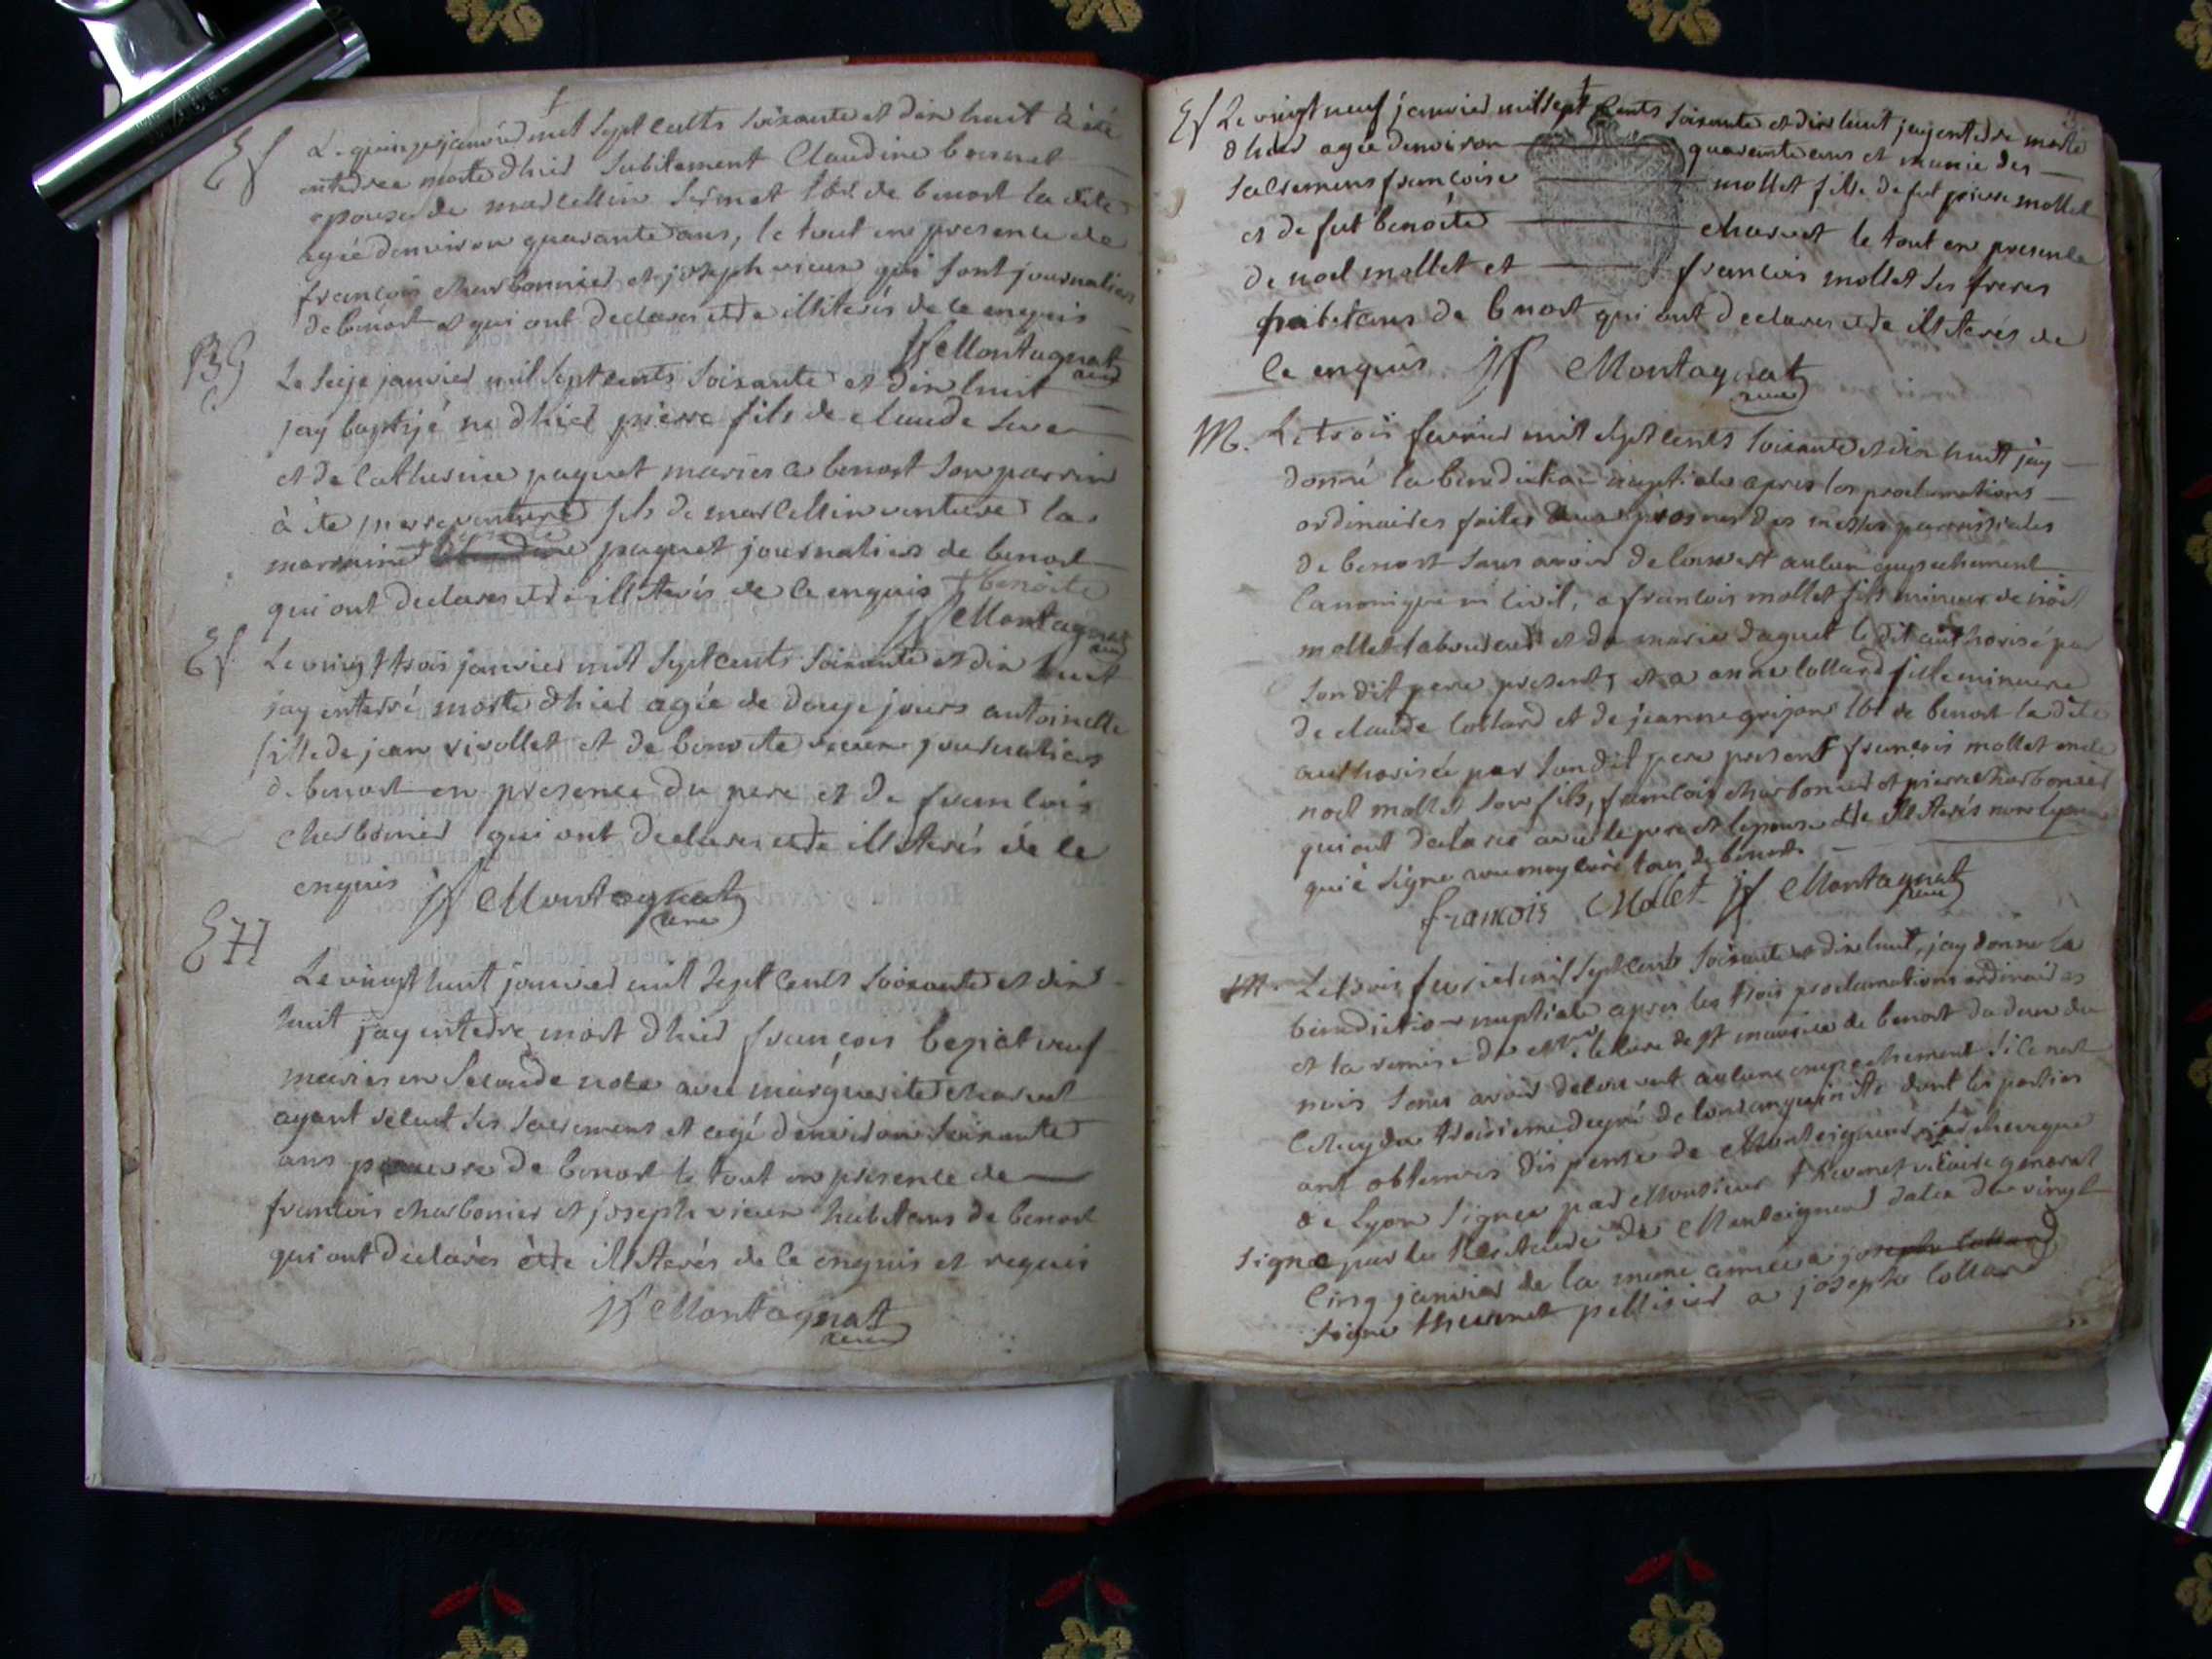 Ef
Le quinze janvier mil sept cents soixante et dix huit à été
enterrée morte d hier subitement Claudine bornet
epouse de marcellin sermet lbr de benost la dite
agée denviron quarante ans, le tout en presence de
francois charbonnier et joseph vieux qui sont journaliers
de benost et qui ont declarés etre illiterés de ce enquis
jf Montagnat curé
BG
Le seize janvier mil sept cents soixante et dix huit
jay baptizé né d hier pierre fils de claude
et de catherine paquet mariés a benost son parrin
à été pierre venture fils de marcellin venture la
marraine paquet journaliers de benost
qui ont declarés etre illiterés de ce enquis + benoite
jf Montagnat curé
Ef
Le vingt trois janvier mil sept cents soixante et dix huit
jay enterré morte d hier agée de douze jours antoinette
fille de jean rivollet et de benoite vieux journaliers
de benost en presence du pere et de francois
charbonier qui ont declarés etre illiterés de ce
enquis jf Montagnat curé
EH
Le vingt huit janvier mil sept cents soixante et dix
huit jay enterré mort d hier françois veuf
mariés en seconde noce avec marguerite charvet
ayant reçut ses sacremens et agé denviron soixante
ans pauvre de benost le tout en presence de
francois charbonier et joseph vieux habitans de benost
qui ont declarés être illiterés de ce enquis et requis
jf Montagnat curé
Ef Le vingt neuf janvier mil sept cents soixante et dix huit jay enterré morte
d hier agée denviron quarante ans et munie des
sacremens françoise mollet fille de fut pierre mollet
et de fut benoite charvet le tout en presence
de noel mollet et francois mollet ses freres
habitans de benost qui ont declarés etre illiterés de
ce enquis jf Montagnat curé
M. Le trois fevrier mil sept cents soixante et dix huit jay
donné la benediction nuptiale apres les proclamations
ordinaires faites aux prosnes des messes parroissiales
de benost sans avoir decouvert aucun empechement
canonique ni civil, a francois mollet fils mineur de noel
mollet laboureur et de marie daguet le dit authorisé par
son dit pere present, et a anne collard fille mineure
de claude collard et de jeanne grizard lbr de benost la dite
authorisée par son dit pere present francois mollet oncle
noel mollet son fils, francois charbonier et pierre charbonier
qui ont declarés avec le pere et lepouse etre illiterés non lepoux
qui à signé avec moy curé tous de benost.
francois Mollet jf Montagnat curé
M. Le trois fevrier mil sept cents soixante et dix huit, jay donné la
benediction nuptiale apres les trois proclamations ordinaires
et la remise de mr le curé de st maurice de benost
mois sans avoir decouvert aucune empechement si ce nest
celuy du troisieme degré de consanguinité dont les parties
ont obtenus dispense de Monseigneur l archeveque
de Lyon signée par Monsieur thevenet vicaire general
signé par le secretaire de Monseigneur datée du vingt
cinq janvier de la meme année a joseph collard
signé thevenet pellisier a joseph collard